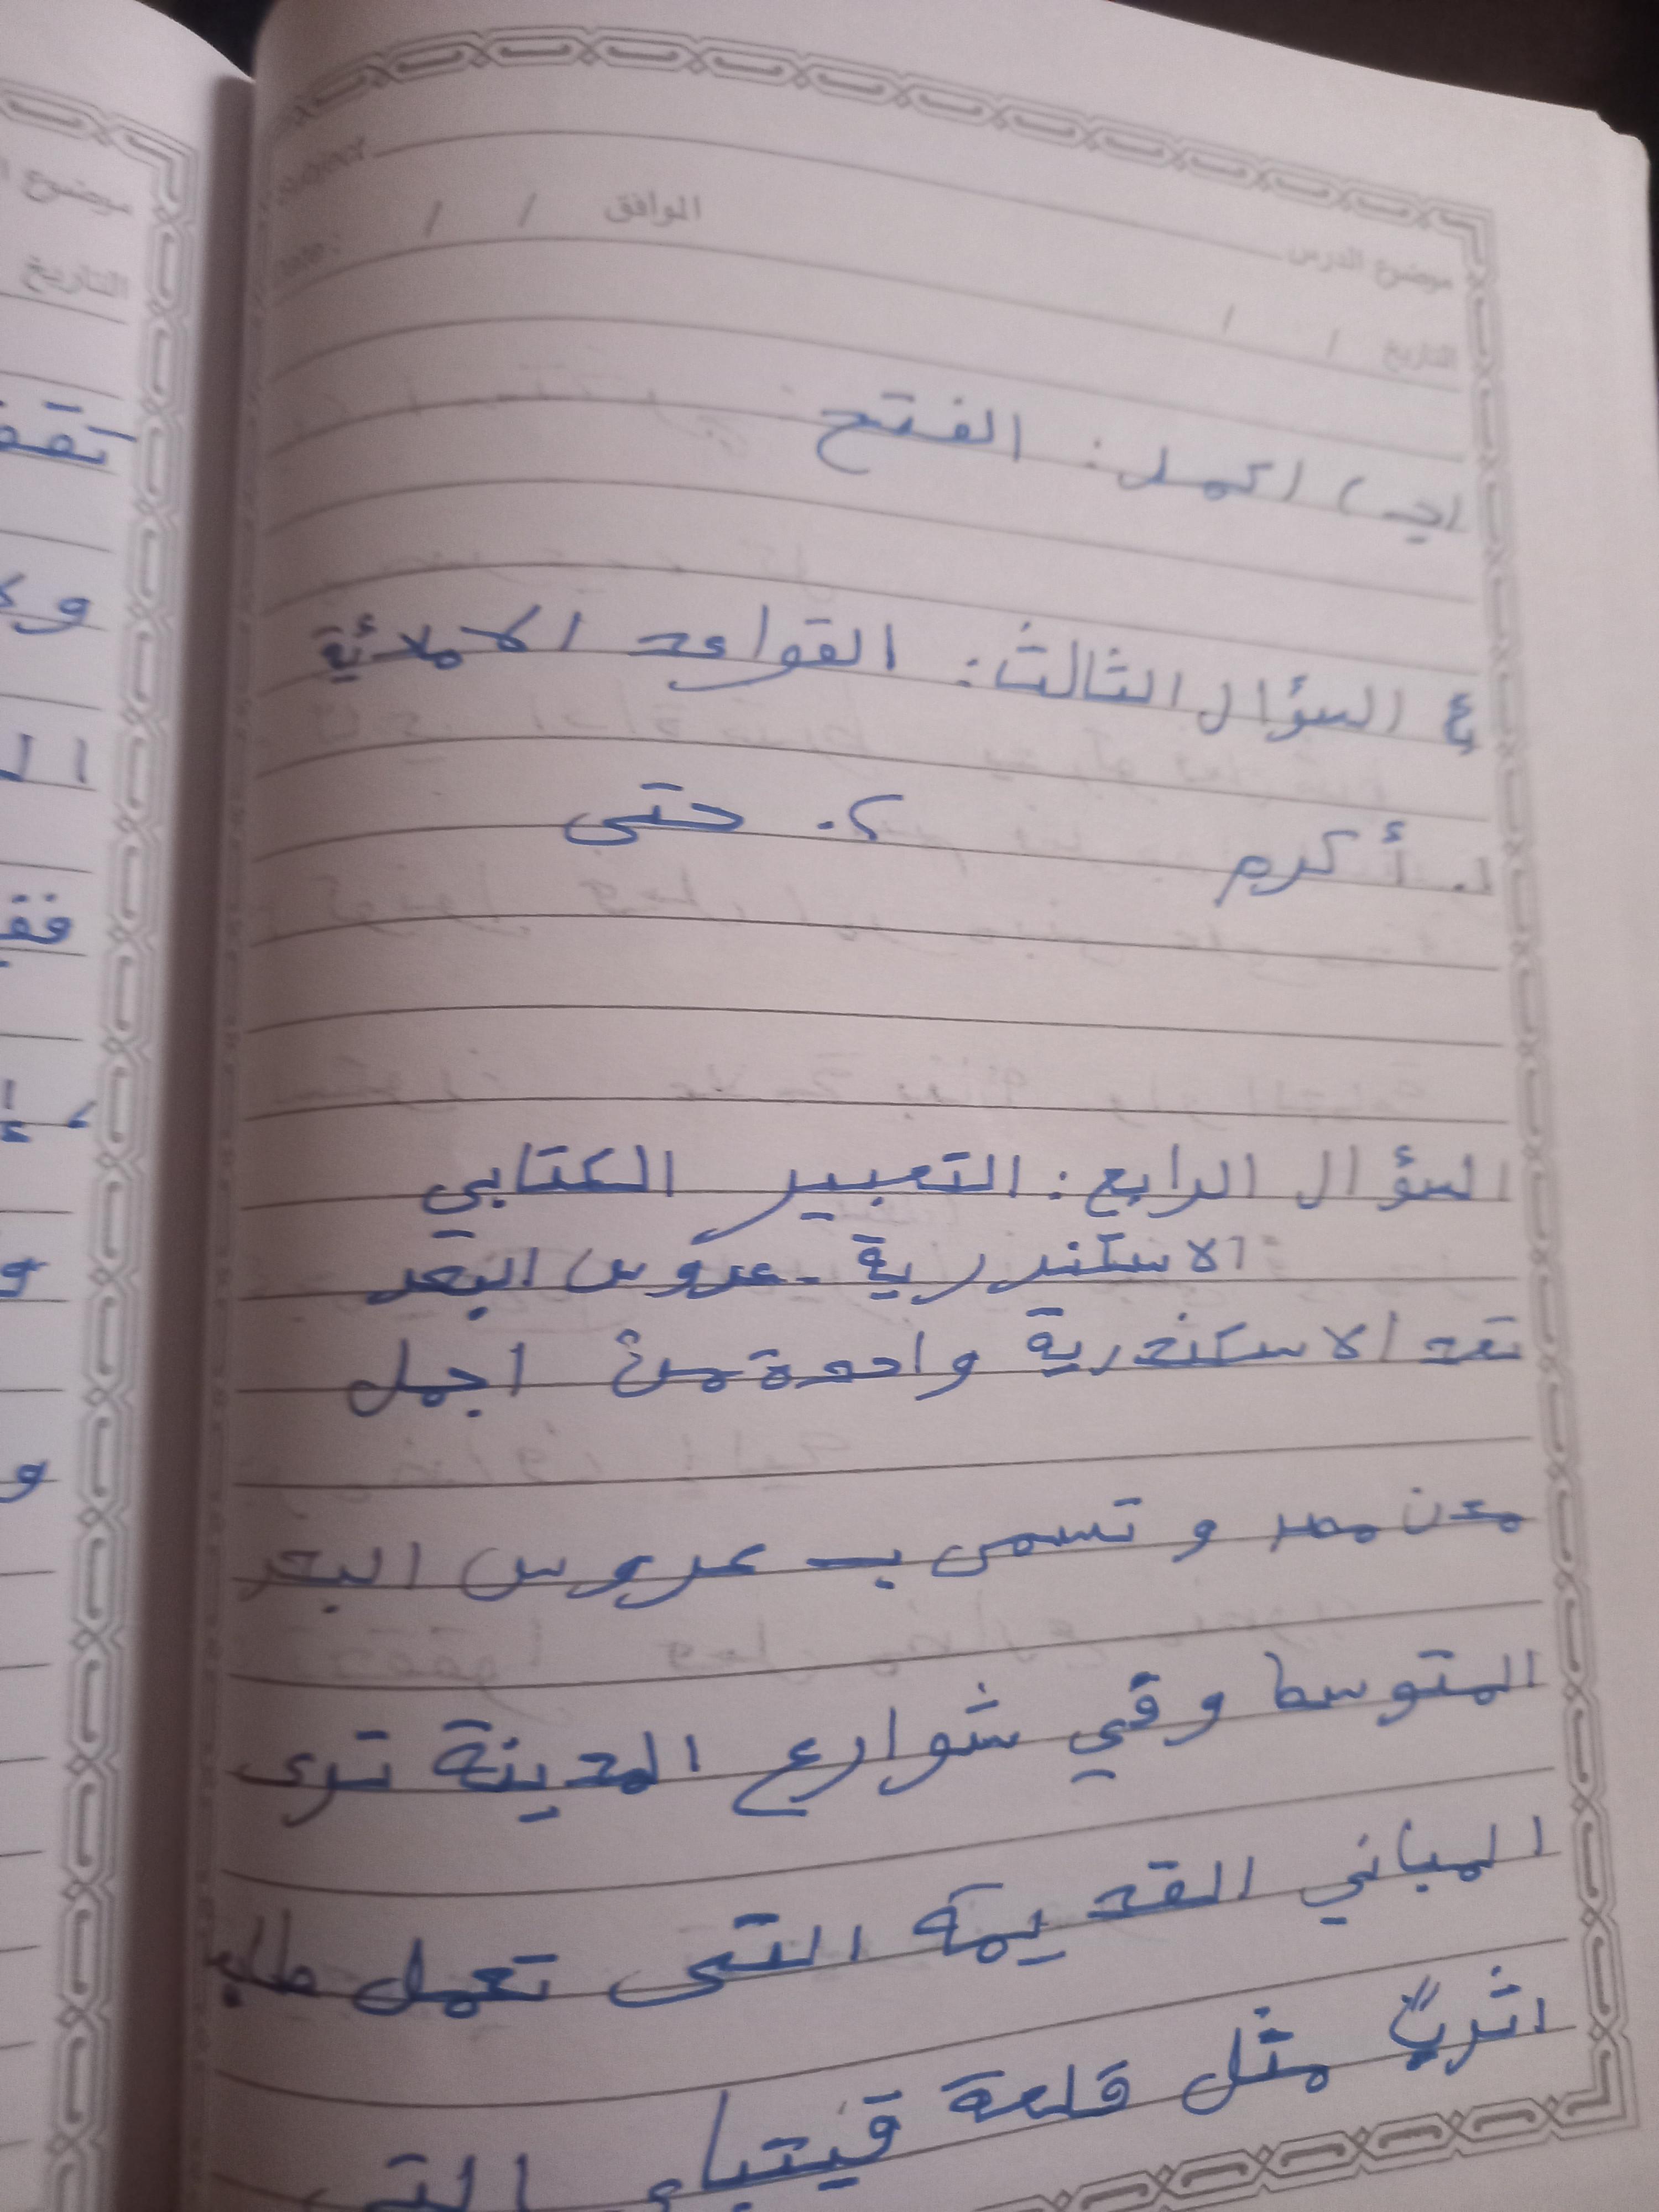 موضوع الدرس
الموافق / /
التاريخ / /
(جـ) اكمل: الفتح
السؤال الثالث: القواعد الاملائية
١. أكرم ٢. حتى
السؤال الرابع: التعبير الكتابي
الاسكندرية - عروس البحر
تعد الاسكندرية واحدة من اجمل
مدن مصر و تسمى بـ عروس البحر
المتوسط وفي شوارع المدينة ترى
المباني القديمة التى تعمل
مثل قلعة قيتباي التي
موضوع
التاريخ